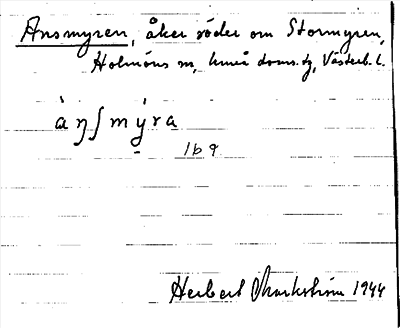 Ansmyren, åker söder om Stormyren,
Holmöns sn, Umeå doms.tg, Västerb. l.
àŋʃmýra
1b9
Herbert Markström 1944